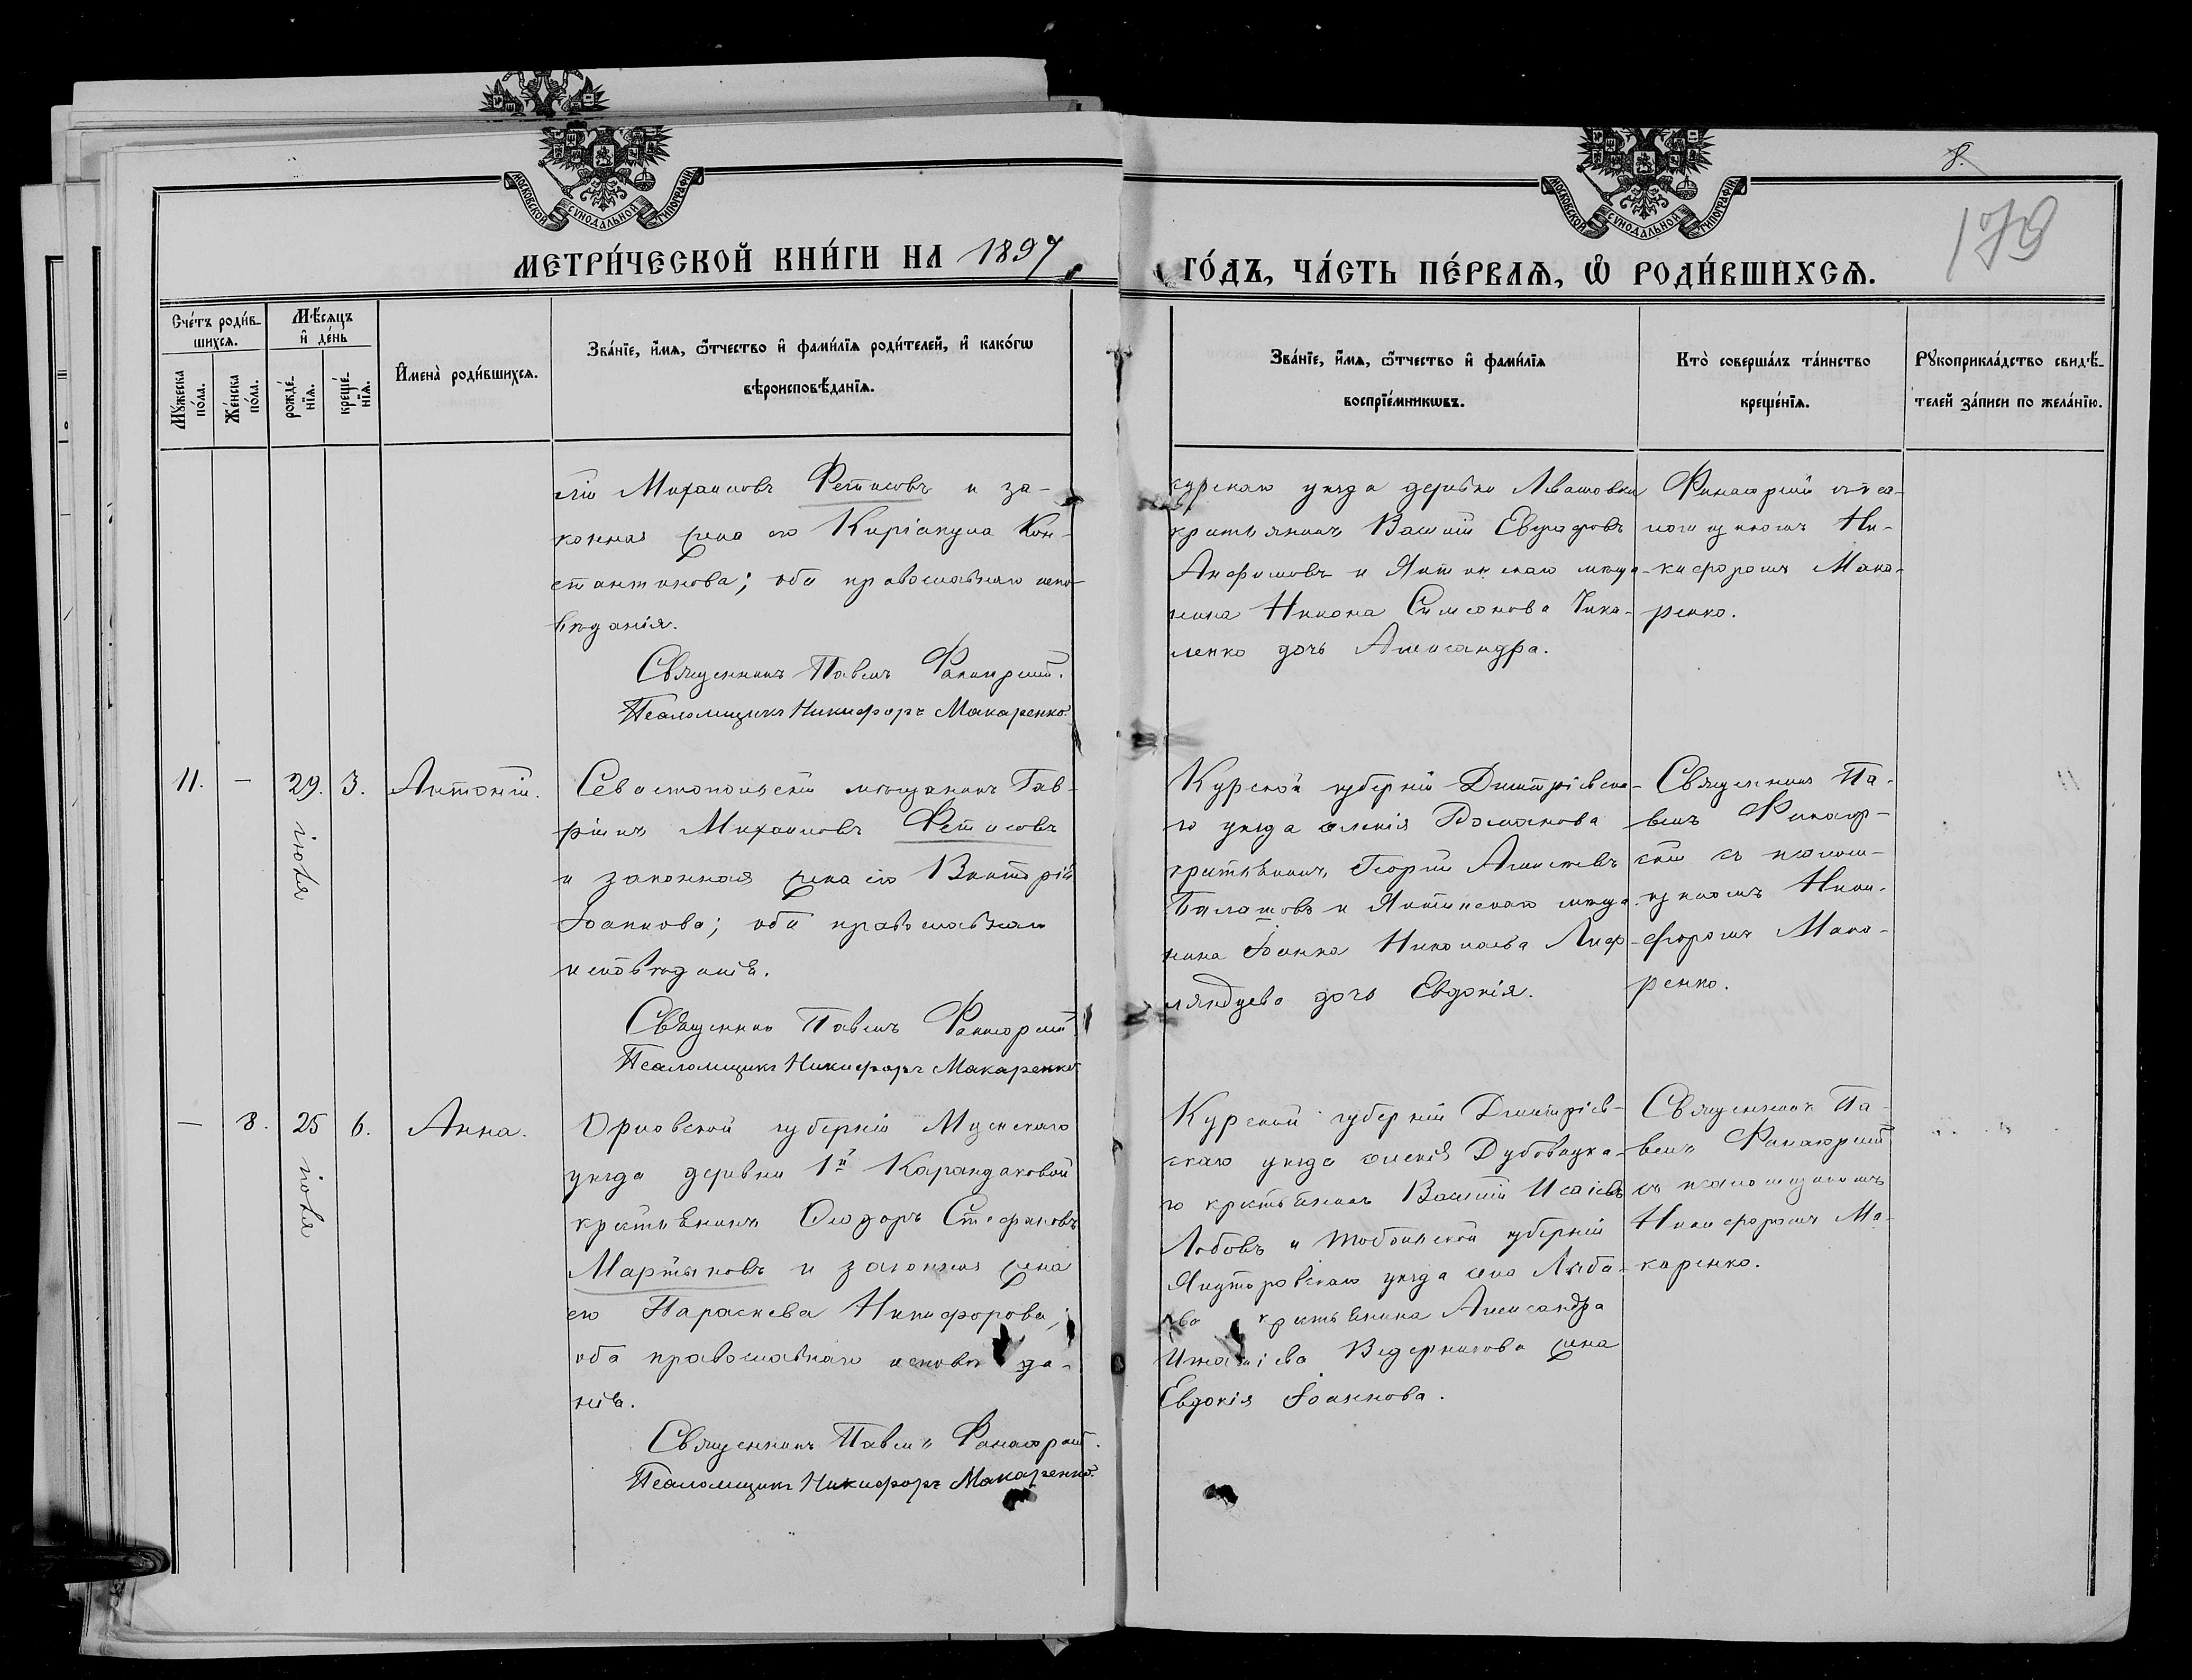 МОСКОВСКОЙ СѴНОДАЛЬНОЙ ТИПОГРАФІИ
МОСКОВСКОЙ СѴНОДАЛЬНОЙ ТИПОГРАФІИ
8.
178
МЕТРИ́ЧЕСКОЙ КНИ́ГИ НА 1897
ГО́ДЪ, ЧА́СТЬ ПЕ́РВАѦ, Ѡ҆ РОДИ́ВШИХСѦ.
Сче́тъ роди́в-
шихсѧ.
Мꙋ́жеска
по́ла.
Же́нска
по́ла.
Мѣ́сѧцъ
и҆ де́нь
рожде́-
нїѧ.
креще́-
нїѧ.
И҆мена̀ роди́вшихсѧ.
Зва́нїе, и҆́мѧ, ѻ҆́тчество и҆ фами́лїѧ роди́телей, и҆ како́гѡ
вѣроисповѣ́данїѧ.
Зва́нїе, и҆́мѧ, ѻ҆́тчество и҆ фами́лїѧ
воспрїе́мникѡвъ.
Кто̀ соверша́лъ та́инство
креще́нїѧ.
Рꙋкоприкла́дство свидѣ́-
телей за́писи по жела́нїю.
Михаиловъ Фетисовъ и за-
конная жена его Киріакула Кон-
стантинова; оба православнаго испо-
вѣданія.
Священникъ Павелъ
Псаломщикъ Никифоръ Макаренко.
курскаго уѣзда деревни
крестьянинъ Василій Евграфовъ
Анфиловъ и Ялтинскаго мѣща-
нина Никона Симеонова Чика-
ленко дочь Александра.
съ пса-
ломщикомъ Ни-
кифоромъ Мака-
ренко.
11.
—
29.
іюля
3.
Антоній.
Севастопольскій мѣщанинъ Гав-
ріилъ Михаиловъ Фетисовъ
и законная жена его Викторія
Іоаннова; оба православнаго
исповѣданія.
Священникъ Павелъ
Псаломщикъ Никифоръ Макаренко
Курской губерніи Дмитріевска-
го уѣзда селенія Романова
крестьянинъ Георгій Алексѣевъ
и Ялтинскаго мѣща-
нина Іоанна Николаева Лиф-
ляндцева дочь Евдокія.
Священникъ Па-
велъ
съ псалом-
щикомъ Ники-
форомъ Мака-
ренко.
—
8.
25
іюля
6.
Анна.
Орловской губерніи Мценскаго
уѣзда деревни 1й Карандаковой
крестьянинъ Ѳеодоръ Стефановъ
Мартыновъ и законная жена
его Параскева Никифорова;
оба православнаго исповѣда-
нія.
Священникъ Павелъ
Псаломщикъ Никифоръ Макаренко.
Курской губерніи Дмитріев-
скаго уѣзда селенія
го крестьянинъ Василій Исаіевъ
Лобовъ и Тобольской губерніи
Ялуторовскаго уѣзда села Лыба-
ева крестьянина Александра
Игнатіева Ведерникова жена
Евдокія Іоаннова.
Священникъ Па-
велъ
съ псаломщикомъ
Никифоромъ Ма-
каренко.